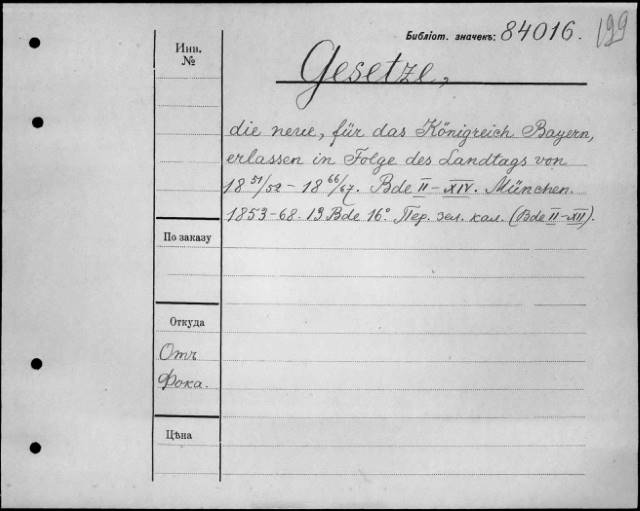 Библіот. значекъ: 84016. 199
Инв.
№
Gesetze,
die neue, für das Königreich Bayern,
erlassen in Folge des Landtags von
18 51/52 – 18 66/67. Bde II – XIV. München.
1853-68. 13 Bde 16° Пер. зел. кал. (Bde II-XII).
По заказу
Откуда
Отъ
Фока.
Цѣна